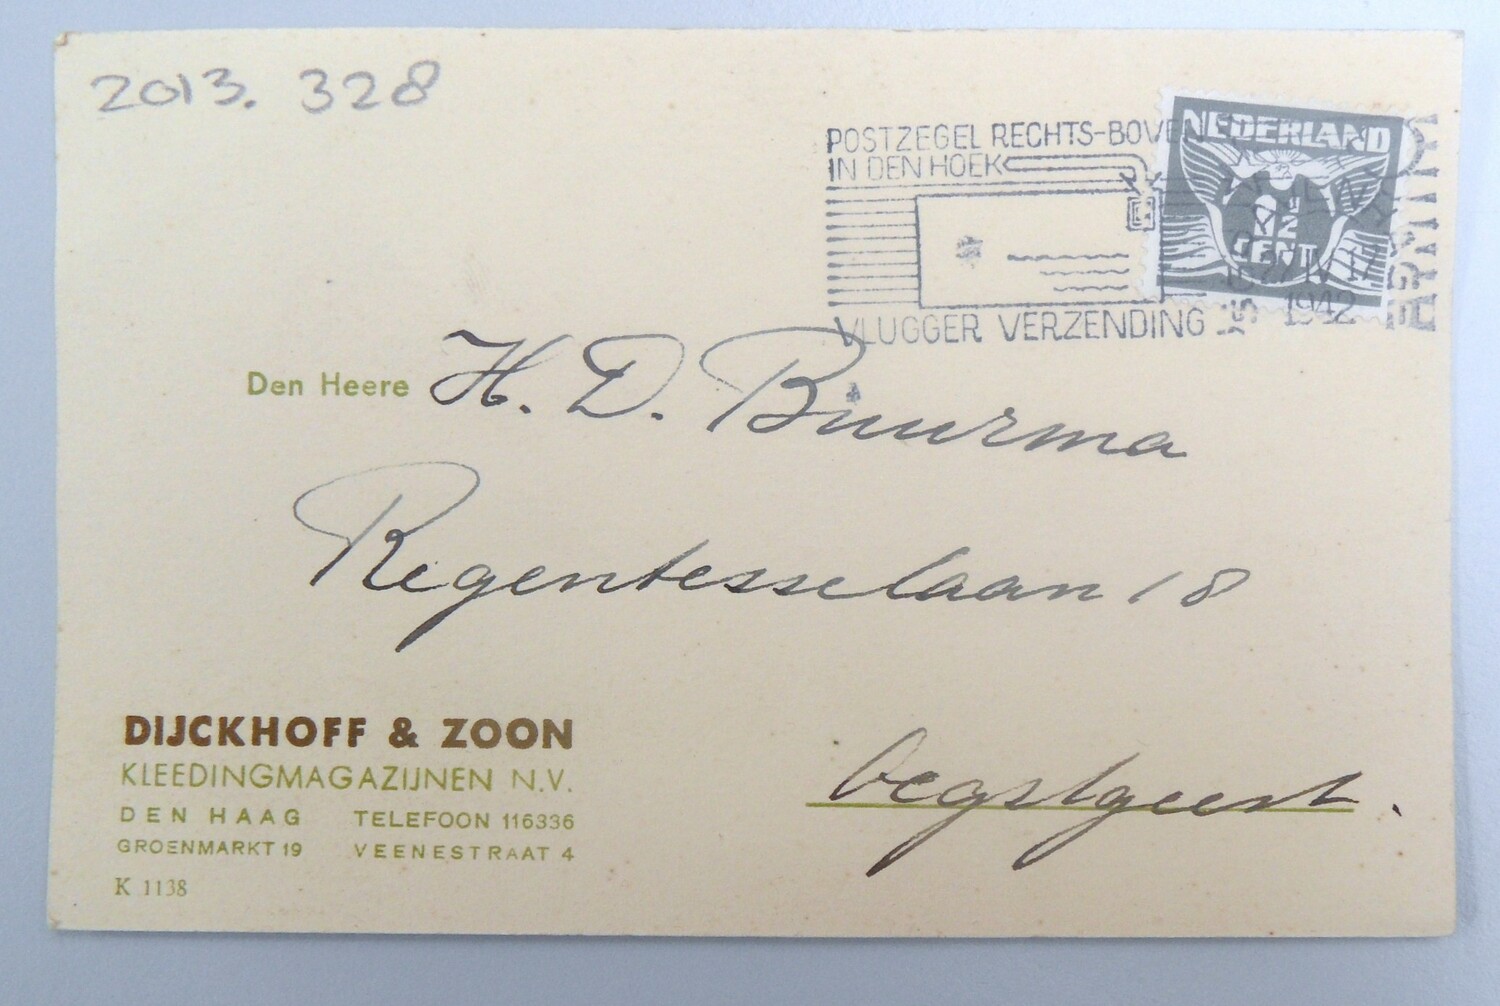 2013. 328
POSTZEGEL RECHTS-BOVEN
IN DEN HOEK
NEDERLAND
1½
CENT
IV 17
1942
VLUGGER VERZENDING
Den Heere H. D. Buurma
Regentesselaan 18
Oegstgeest.
DIJCKHOFF & ZOON
KLEEDINGMAGAZIJNEN N.V.
DEN HAAG TELEFOON 116336
GROENMARKT 19 VEENESTRAAT 4
K 1138